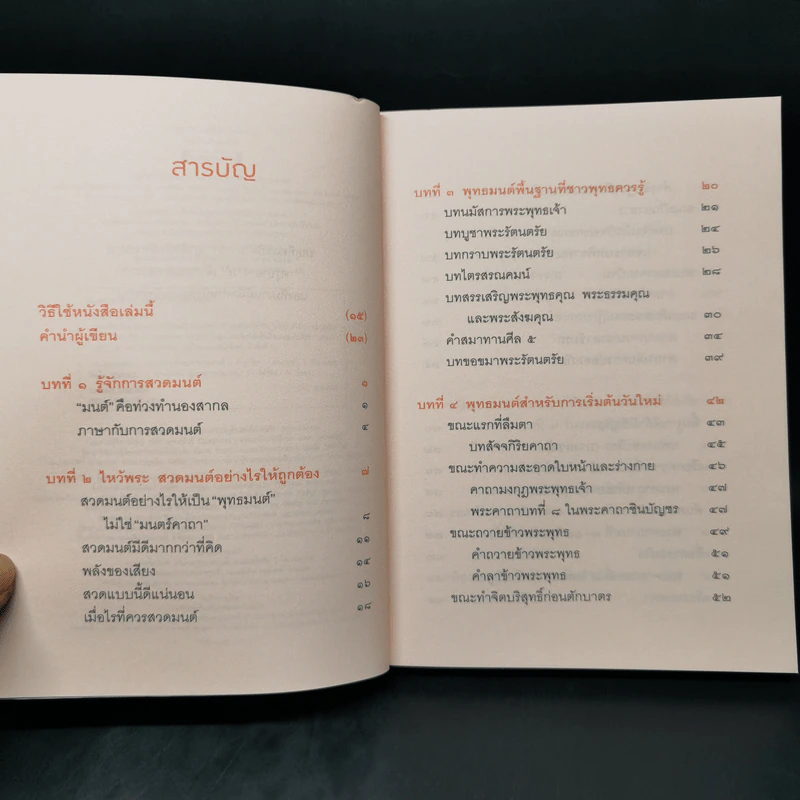 สารบัญ
วิธีใช้หนังสือเล่มนี้ (๑๕)
คำนำผู้เขียน (๒๓)
บทที่ ๑ รู้จักการสวดมนต์ ๑
“มนต์” คือท่วงทำนองสากล ๑
ภาษากับการสวดมนต์ ๔
บทที่ ๒ ไหว้พระ สวดมนต์อย่างไรให้ถูกต้อง ๗
สวดมนต์อย่างไรให้เป็น “พุทธมนต์”
ไม่ใช่ “มนตร์คาถา” ๘
สวดมนต์มีดีมากกว่าที่คิด ๑๑
พลังของเสียง ๑๔
สวดแบบนี้ดีแน่นอน ๑๖
เมื่อไรที่ควรสวดมนต์ ๑๘
บทที่ ๓ พุทธมนต์พื้นฐานที่ชาวพุทธควรรู้ ๒๐
บทนมัสการพระพุทธเจ้า ๒๑
บทบูชาพระรัตนตรัย ๒๔
บทกราบพระรัตนตรัย ๒๖
บทไตรสรณคมน์ ๒๘
บทสรรเสริญพระพุทธคุณ พระธรรมคุณ
และพระสังฆคุณ ๓๐
คำสมาทานศีล ๕ ๓๔
บทขอขมาพระรัตนตรัย ๓๙
บทที่ ๔ พุทธมนต์สำหรับการเริ่มต้นวันใหม่ ๔๒
ขณะแรกที่ลืมตา ๔๓
บทสัจจกิริยคาถา ๔๕
ขณะทำความสะอาดใบหน้าและร่างกาย ๔๖
คาถามงกุฎพระพุทธเจ้า ๔๗
พระคาถาบทที่ ๘ ในพระคาถาชินบัญชร ๔๗
ขณะถวายข้าวพระพุทธ ๔๙
คำถวายข้าวพระพุทธ ๕๑
คำลาข้าวพระพุทธ ๕๑
ขณะทำจิตบริสุทธิ์ก่อนตักบาตร ๕๒